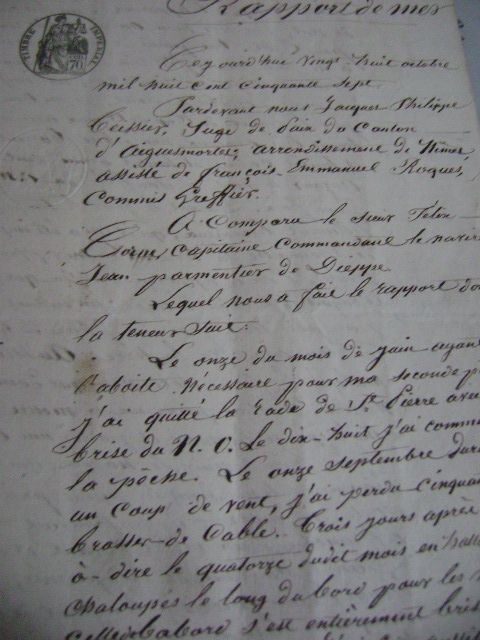 Rapport de mer
TIMBRE IMPERIAL
70
Cejourd'hui vingt huit octobre
mil huit cent cinquante sept.
Pardevant nous Jacques Philippe
Juge de Paix du Canton
d'Aiguesmortes, arrondissement de Nimes
assisté de françois Emmanuel Roques,
Commis Greffier.
A Comparu le sieur Félix
Capitaine Commandant le navire
Jean parmentier de Dieppe
Lequel nous a fait le rapport do
la teneur suit:
Le onze du mois de juin ayan
l'aboite nécessaire pour ma seconde p
j'ai quitté la rade de St Pierre avec
brise du N. O. Le dix-huit j'ai comm
la pêche. Le onze septembre dura
un coup de vent, j'ai perdu cinquan
brasses de Cable. Trois jours après
à-dire le quatorze dudit mois en hallan
chaloupes le long du bord pour les
celle de babord s'est entièrement bris